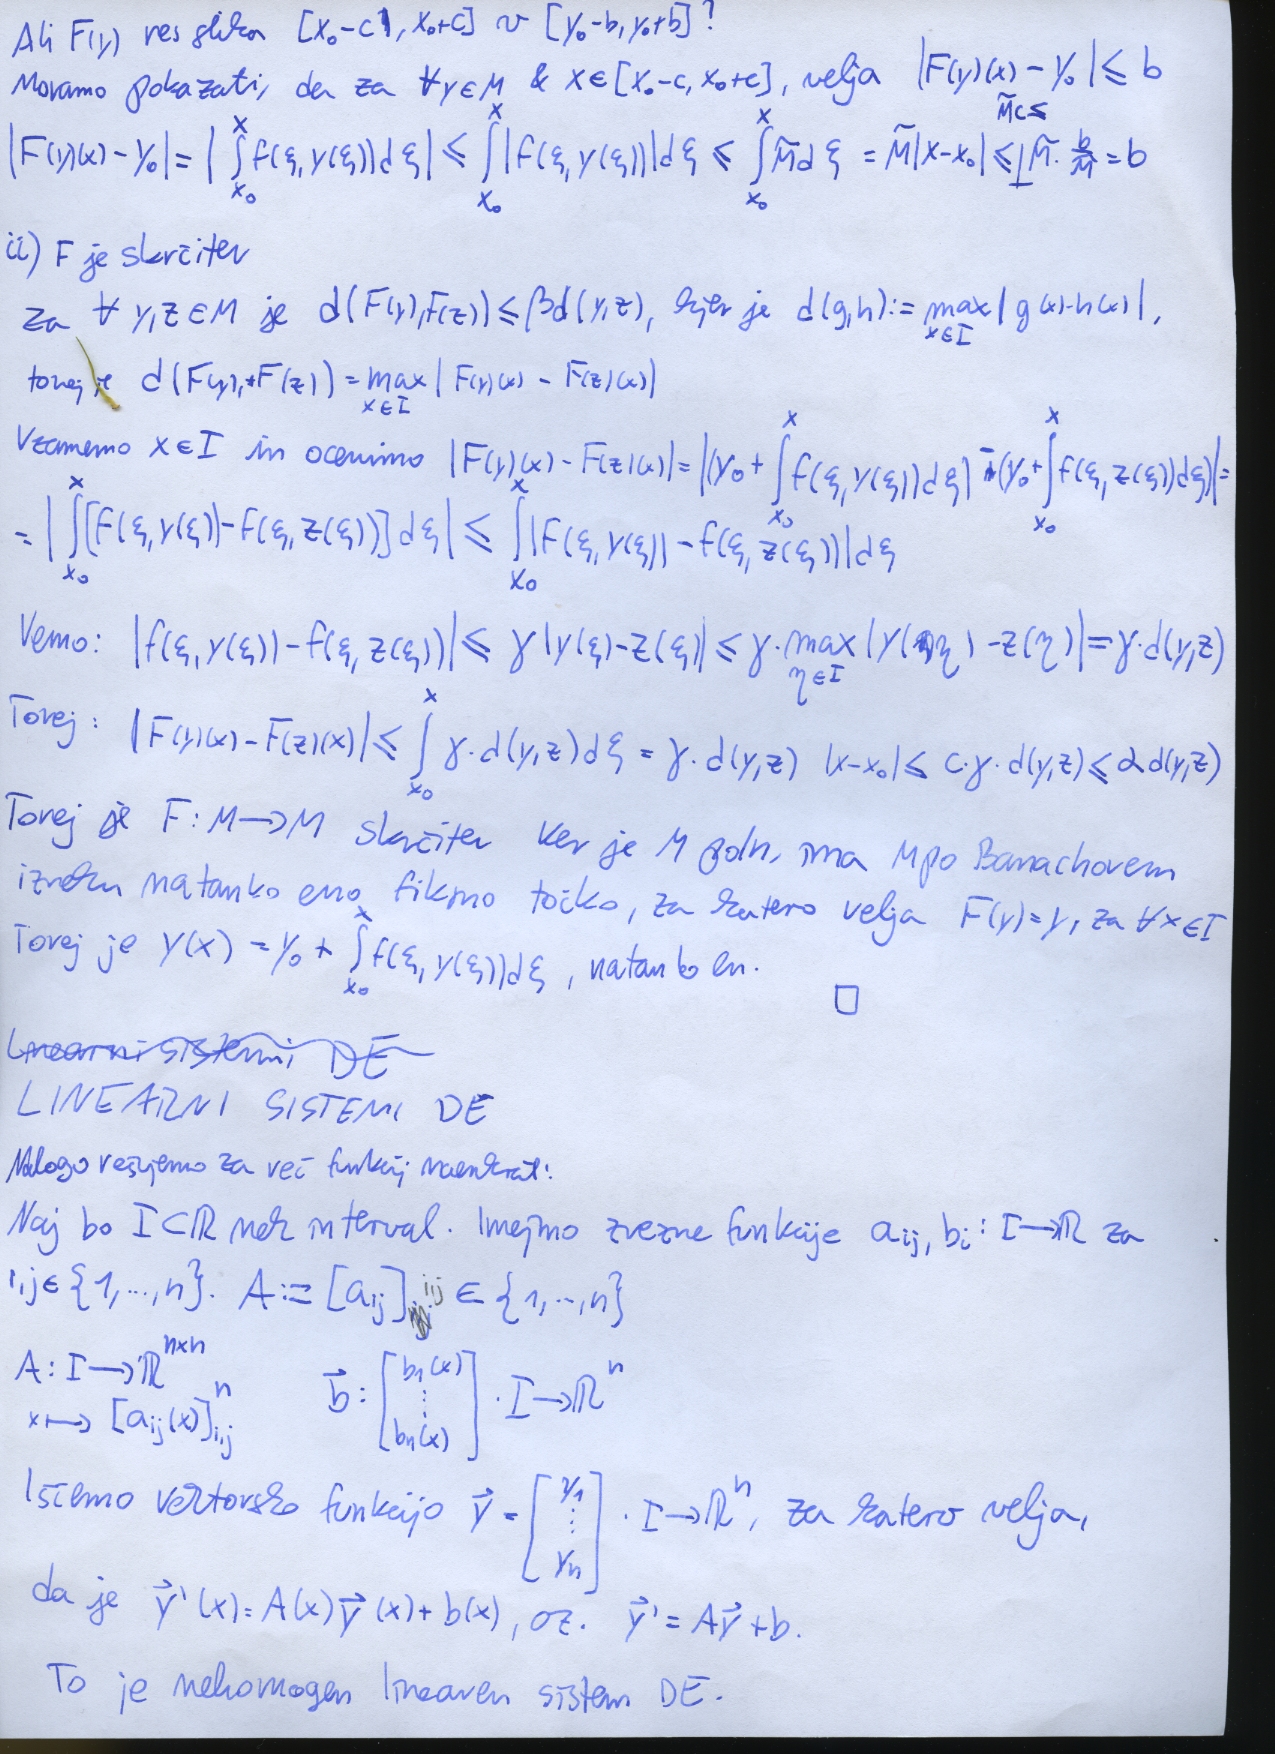 Ali F(y) res slika [x₀-c, x₀+c] v [y₀-b, y₀+b]?
Moramo pokazati, da za ∀y∈M & x∈[x₀-c, x₀+c], velja |F(y)(x) - y₀| ≤ b
|F(y)(x) - y₀| = | ∫_{x₀}^{x} f(ξ, y(ξ))dξ | ≤ ∫_{x₀}^{x} |f(ξ, y(ξ))|dξ ≤ ∫_{x₀}^{x} M̃dξ = M̃|x-x₀| ≤ M̃c ≤ M̃· b/M̃ = b
ii) F je skrčitev
Za ∀ y,z∈M je d(F(y),F(z)) ≤ βd(y,z), kjer je d(g,h) := max_{x∈I} |g(x)-h(x)|,
torej je d(F(y), F(z)) = max_{x∈I} | F(y)(x) - F(z)(x)|
Vzamemo x∈I in ocenimo |F(y)(x) - F(z)(x)| = |(y₀ + ∫_{x₀}^{x} f(ξ, y(ξ))dξ) - (y₀ + ∫_{x₀}^{x} f(ξ, z(ξ))dξ)| =
= | ∫_{x₀}^{x} [f(ξ, y(ξ)) - f(ξ, z(ξ))]dξ | ≤ ∫_{x₀}^{x} |f(ξ, y(ξ)) - f(ξ, z(ξ))|dξ
Vemo: |f(ξ, y(ξ)) - f(ξ, z(ξ))| ≤ γ |y(ξ)-z(ξ)| ≤ γ· max_{η∈I} |y(η) - z(η)| = γ·d(y,z)
Torej: |F(y)(x) - F(z)(x)| ≤ ∫_{x₀}^{x} γ·d(y,z)dξ = γ·d(y,z) |x-x₀| ≤ c·γ·d(y,z) ≤ αd(y,z)
Torej je F: M→M skrčitev Ker je M poln, ima M po Banachovem
izreku natanko eno fiksno točko, za katero velja F(y)=y, za ∀x∈I
Torej je y(x) = y₀ + ∫_{x₀}^{x} f(ξ, y(ξ))dξ, natanko en. □
Linearni sistemi DE
LINEARNI SISTEMI DE
Nalogo rešujemo za več funkcij naenkrat:
Naj bo I⊂ℝ nek interval. Imejmo zvezne funkcije a_{ij}, b_i: I→ℝ za
i,j∈{1,...,n}. A := [a_{ij}] i,j ∈ {1,...,n}
A: I→ℝ^{n×n} b⃗: [b₁(x) ⋮ bₙ(x)] · I→ℝⁿ
x↦[a_{ij}(x)]_{i,j}^{n}
Iščemo vektorsko funkcijo y⃗ = [y₁ ⋮ yₙ] · I→ℝⁿ, za katero velja,
da je y⃗'(x) = A(x)y⃗(x) + b(x), oz. y⃗' = Ay⃗ + b.
To je nehomogen linearen sistem DE.